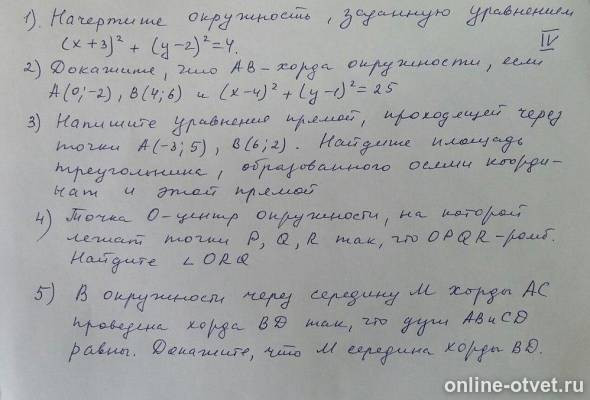 1). Начертите окружность, заданную уравнением
(x+3)² + (y-2)² = 4.
IV
2) Докажите, что AB-хорда окружности, если
A(0;-2), B(4;6) и (x-4)² + (y-1)² = 25
3) Напишите уравнение прямой, проходящей через
точки A(-3;5), B(6;2). Найдите площадь
треугольника, образованного осями коорди-
нат и этой прямой
4) Точка O-центр окружности, на которой
лежат точки P, Q, R так, что OPQR-ромб.
Найдите ∠ORQ
5) В окружности через середину M хорды AC
проведена хорда BD так, что дуги AB и CD
равны. Докажите, что M середина хорды BD.
online-otvet.ru